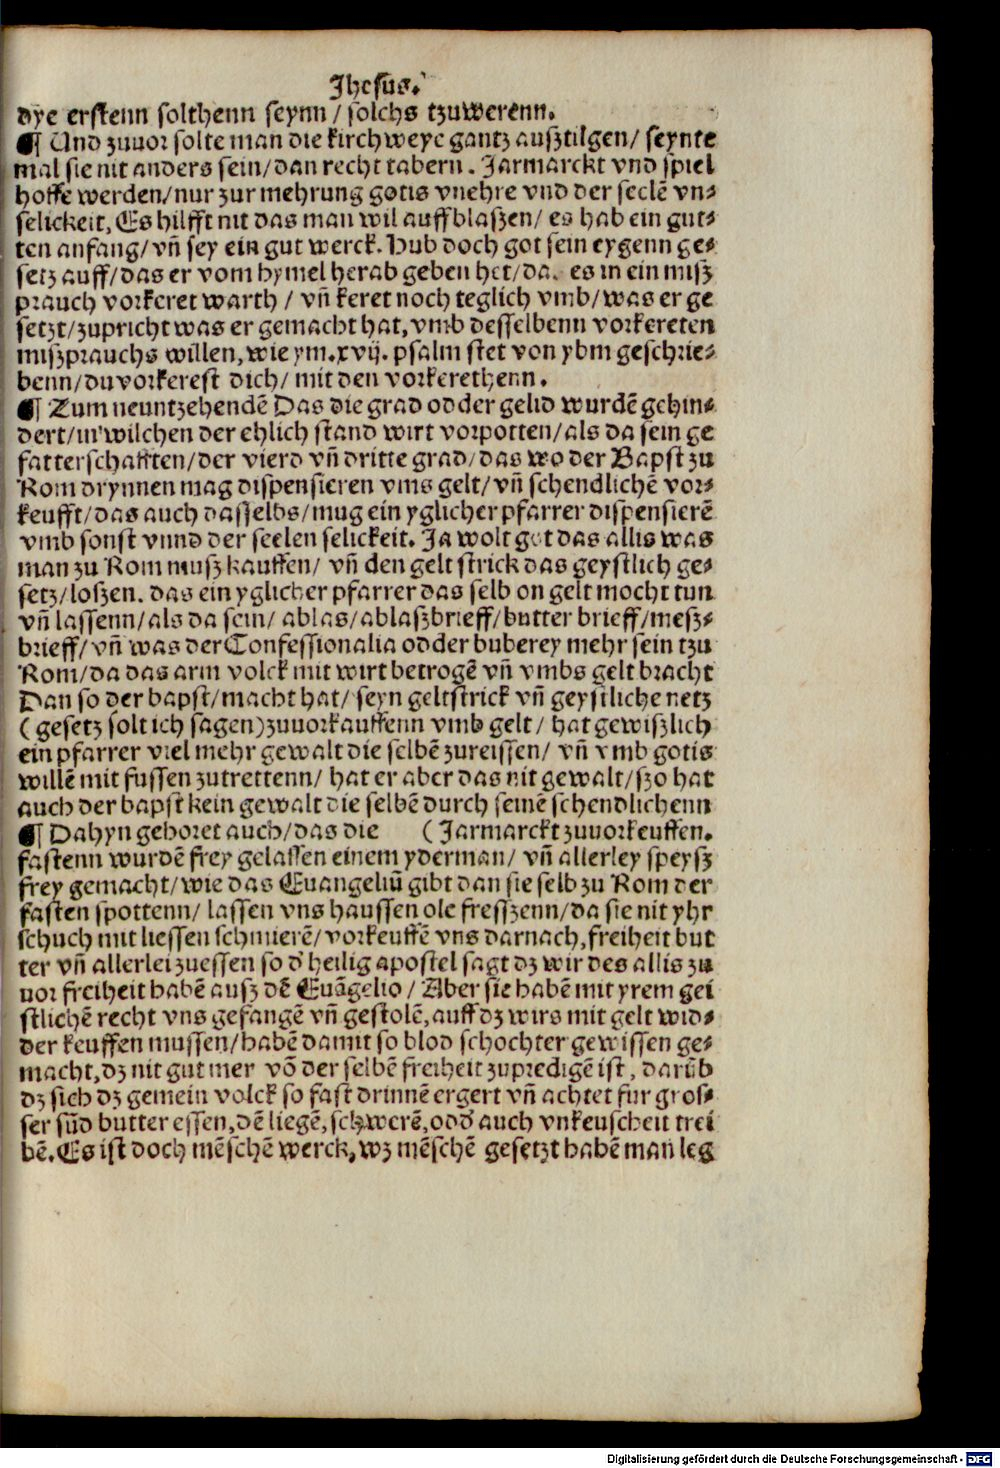 Jhesus.
dye erstenn solthenn seynn / solchs tzuwerenn.
¶ Und zuuor solte man die kirchweye gantz auſztilgen/ seynte
mal sie nit anders sein/dan recht tabern. Jarmarckt vnd spiel
hoffe werden/nur zur mehrung gotis vnehre vnd der seelē vn⸗
selickeit, Es hilfft nit das man wil auffblaſzen/ es hab ein gut⸗
ten anfang/vn̄ sey ein gut werck. Hub doch got sein eygenn ge⸗
setz auff/das er vom hymel herab geben het/da. es in ein miſz
prauch vorkeret warth / vn̄ keret noch teglich vmb/was er ge
setzt/zupricht was er gemacht hat, vmb desselbenn vorkereten
miſzprauchs willen, wie ym.xvij. psalm stet von yhm geschrie⸗
benn/du vorkerest dich/ mit den vorkerethenn.
¶ Zum neuntzehendē Das die grad odder gelid wurdē gehin⸗
dert/in wilchen der ehlich stand wirt vorpotten/als da sein ge
fatterschafften/der vierd vn̄ dritte grad/das wo der Bapst zu
Rom drynnen mag dispensieren vms gelt/vn̄ schendlichē vor⸗
keufft/das auch dasselbs/mug ein yglicher pfarrer dispensierē
vmb sonst vnnd der seelen selickeit. Ja wolt got das allis was
man zu Rom muſz kauffen/ vn̄ den gelt strick das geystlich ge⸗
setz/loſzen. das ein yglicher pfarrer das selb on gelt mocht tun
vn̄ lassenn/als da sein/ ablas/ablaſzbrieff/butter brieff/meſz⸗
brieff/vn̄ was der Confessionalia odder buberey mehr sein tzu
Rom/da das arm volck mit wirt betrogē vn̄ vmbs gelt bracht
Dan so der bapst/macht hat/ seyn geltstrick vn̄ geystliche netz
(gesetz solt ich sagen)zuuorkauffenn vmb gelt/ hat gewiſzlich
ein pfarrer viel mehr gewalt die selbē zureissen/ vn̄ vmb gotis
willē mit fussen zutrettenn/ hat er aber das nit gewalt/ſzo hat
auch der bapst kein gewalt die selbē durch seinē schendlichenn
¶ Dahyn gehoret auch/das die (Jarmarckt zuuorkeuffen.
fastenn wurdē frey gelassen einem yderman/ vn̄ allerley speyſz
frey gemacht/wie das Euangeliū gibt dan sie selb zu Rom der
fasten spottenn/ lassen vns haussen ole freſſzenn/da sie nit yhr
schuch mit liessen schmierē/vorkeuffē vns darnach, freiheit but
ter vn̄ allerlei zuessen so d' heilig apostel sagt dz wir des allis zu
uor freiheit habē auſz dē Euāgelio / Aber sie habē mit yrem gei
stlichē recht vns gefangē vn̄ gestolē, auff dz wirs mit gelt wid⸗
der keuffen mussen/habē damit so blod schochter gewissen ge⸗
macht, dz nit gut mer vō der selbē freiheit zupredigē ist, darūb
dz sich dz gemein volck so fast drinnē ergert vn̄ achtet fur gros⸗
ser sūd butter essen, dē liegē, schwerē, odd' auch vnkeuscheit trei
bē. Es ist doch mēschē werck, wz mēschē gesetzt habē man leg
Digitalisierung gefördert durch die Deutsche Forschungsgemeinschaft - DFG